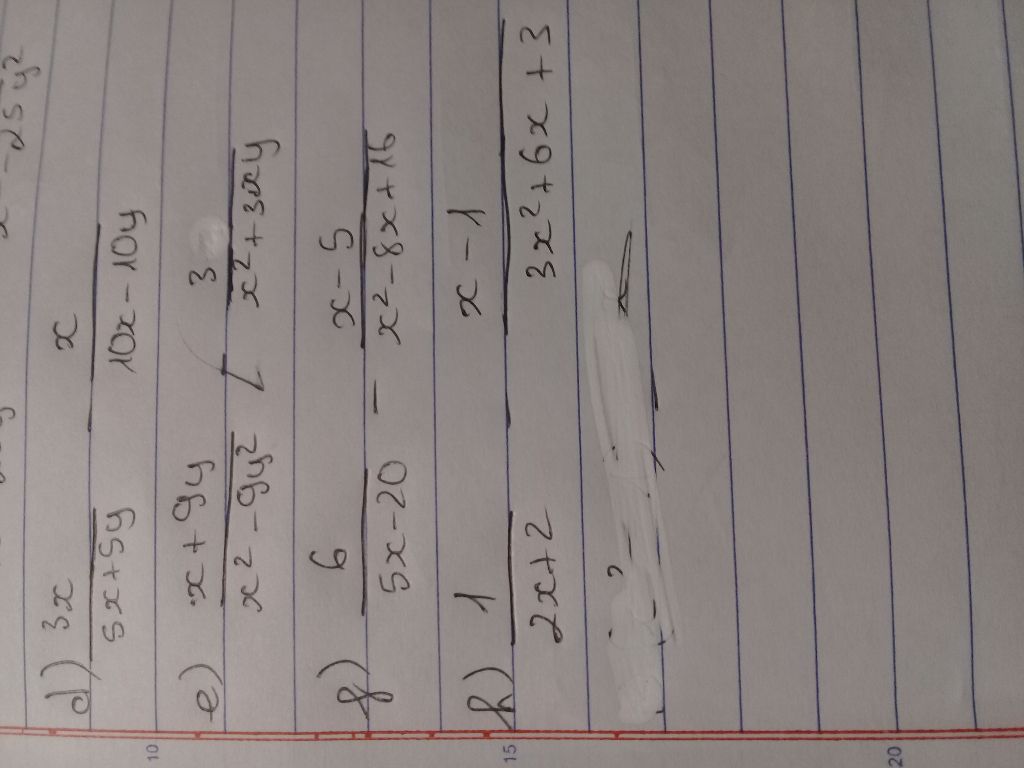 x² - 25y²
d) 3x/(5x+5y) - x/(10x-10y)
e) (x+9y)/(x²-9y²) - 3/(x²+3xy)
g) 6/(5x-20) - (x-5)/(x²-8x+16)
h) 1/(2x+2) - (x-1)/(3x²+6x+3)
10
15
20